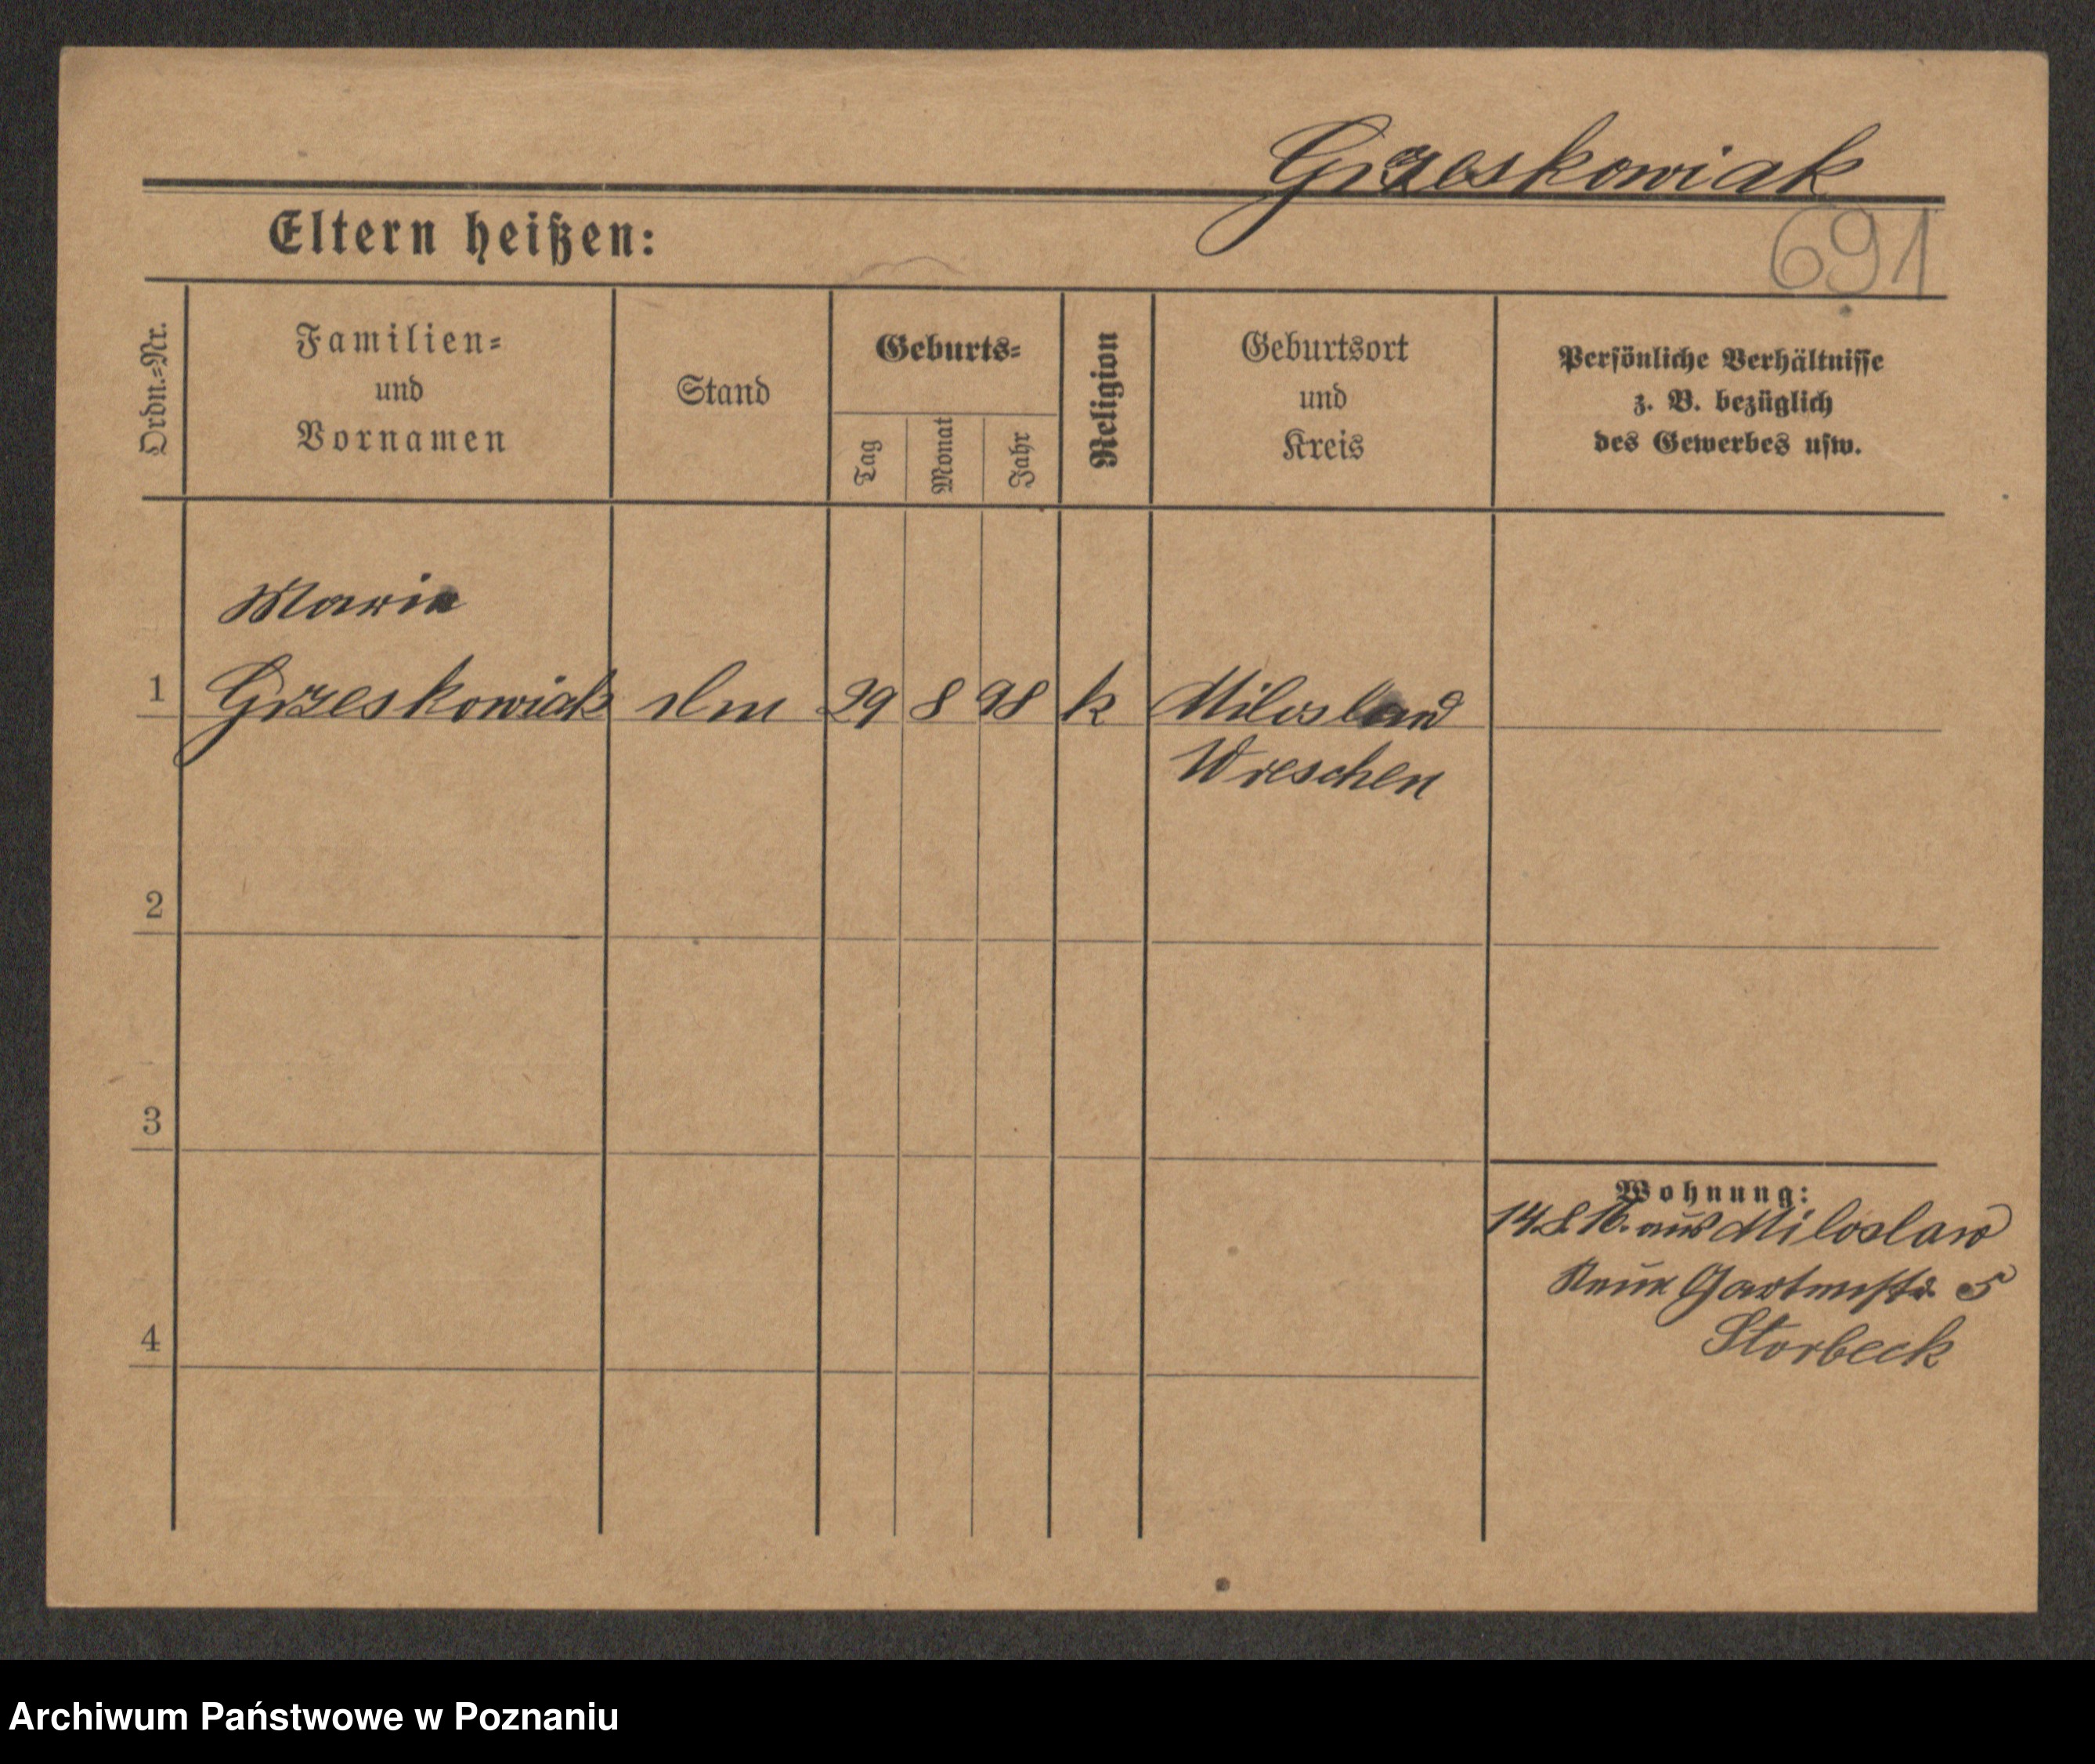 Grzeskowiak
Eltern heißen:
691
Ordn.=Nr.
Familien=
und
Vornamen
Stand
Geburts=
Tag
Monat
Jahr
Religion
Geburtsort
und
Kreis
Persönliche Verhältnisse
z. B. bezüglich
des Gewerbes usw.
Maria
1 Grzeskowiak 29 8 98 k Miloslaw
Wreschen
2
3
4
Wohnung:
14.8.16. aus Miloslaw
Neue Gartenstr. 5
Storbeck
Archiwum Państwowe w Poznaniu